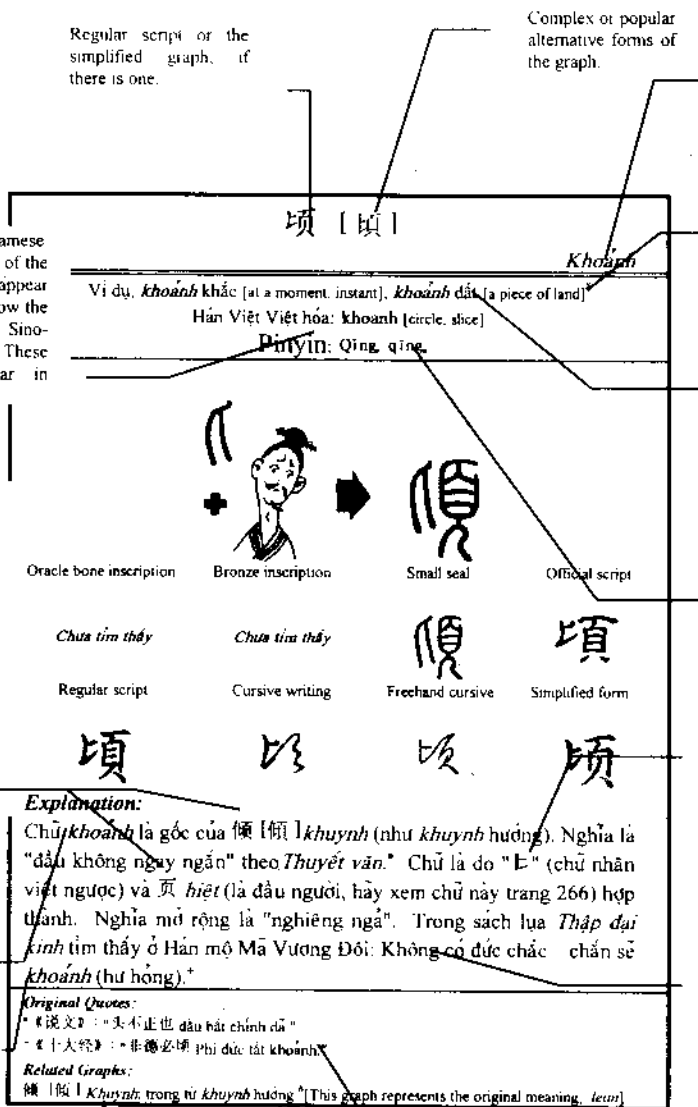 Regular script or the
simplified graph, if
there is one.
Complex or popular
alternative forms of
the graph.
顷 [ 頃 ]
Khoảnh
of the
appear
ow the
Sino-
These
ar in
Ví dụ, khoảnh khắc [at a moment, instant], khoảnh đất [a piece of land]*
Hán Việt Việt hóa: khoanh [circle, slice]
Pinyin: Qīng, qǐng,
Oracle bone inscription Bronze inscription Small seal Official script
Chưa tìm thấy Chưa tìm thấy 頃 頃
Regular script Cursive writing Freehand cursive Simplified form
頃 顷 顷 顷
Explanation:
Chữ khoảnh là gốc của 倾 [傾] khuynh (như khuynh hướng). Nghĩa là
"đầu không ngay ngắn" theo Thuyết văn.* Chữ là do "匕" (chữ nhân
viết ngược) và 页 hiệt (là đầu người, hãy xem chữ này trang 266) hợp
thành. Nghĩa mở rộng là "nghiêng ngả". Trong sách lụa Thập đại
kinh tìm thấy ở Hán mộ Mã Vương Đôi: Không có đức chắc chắn sẽ
khoảnh (hư hỏng).+
Original Quotes:
* 《说文》: "头不正也 đầu bất chính dã"
+ 《十大经》: "非德必顷 Phi đức tất khoảnh"
Related Graphs:
倾 [傾] Khuynh: trong từ khuynh hướng *[This graph represents the original meaning, lean]